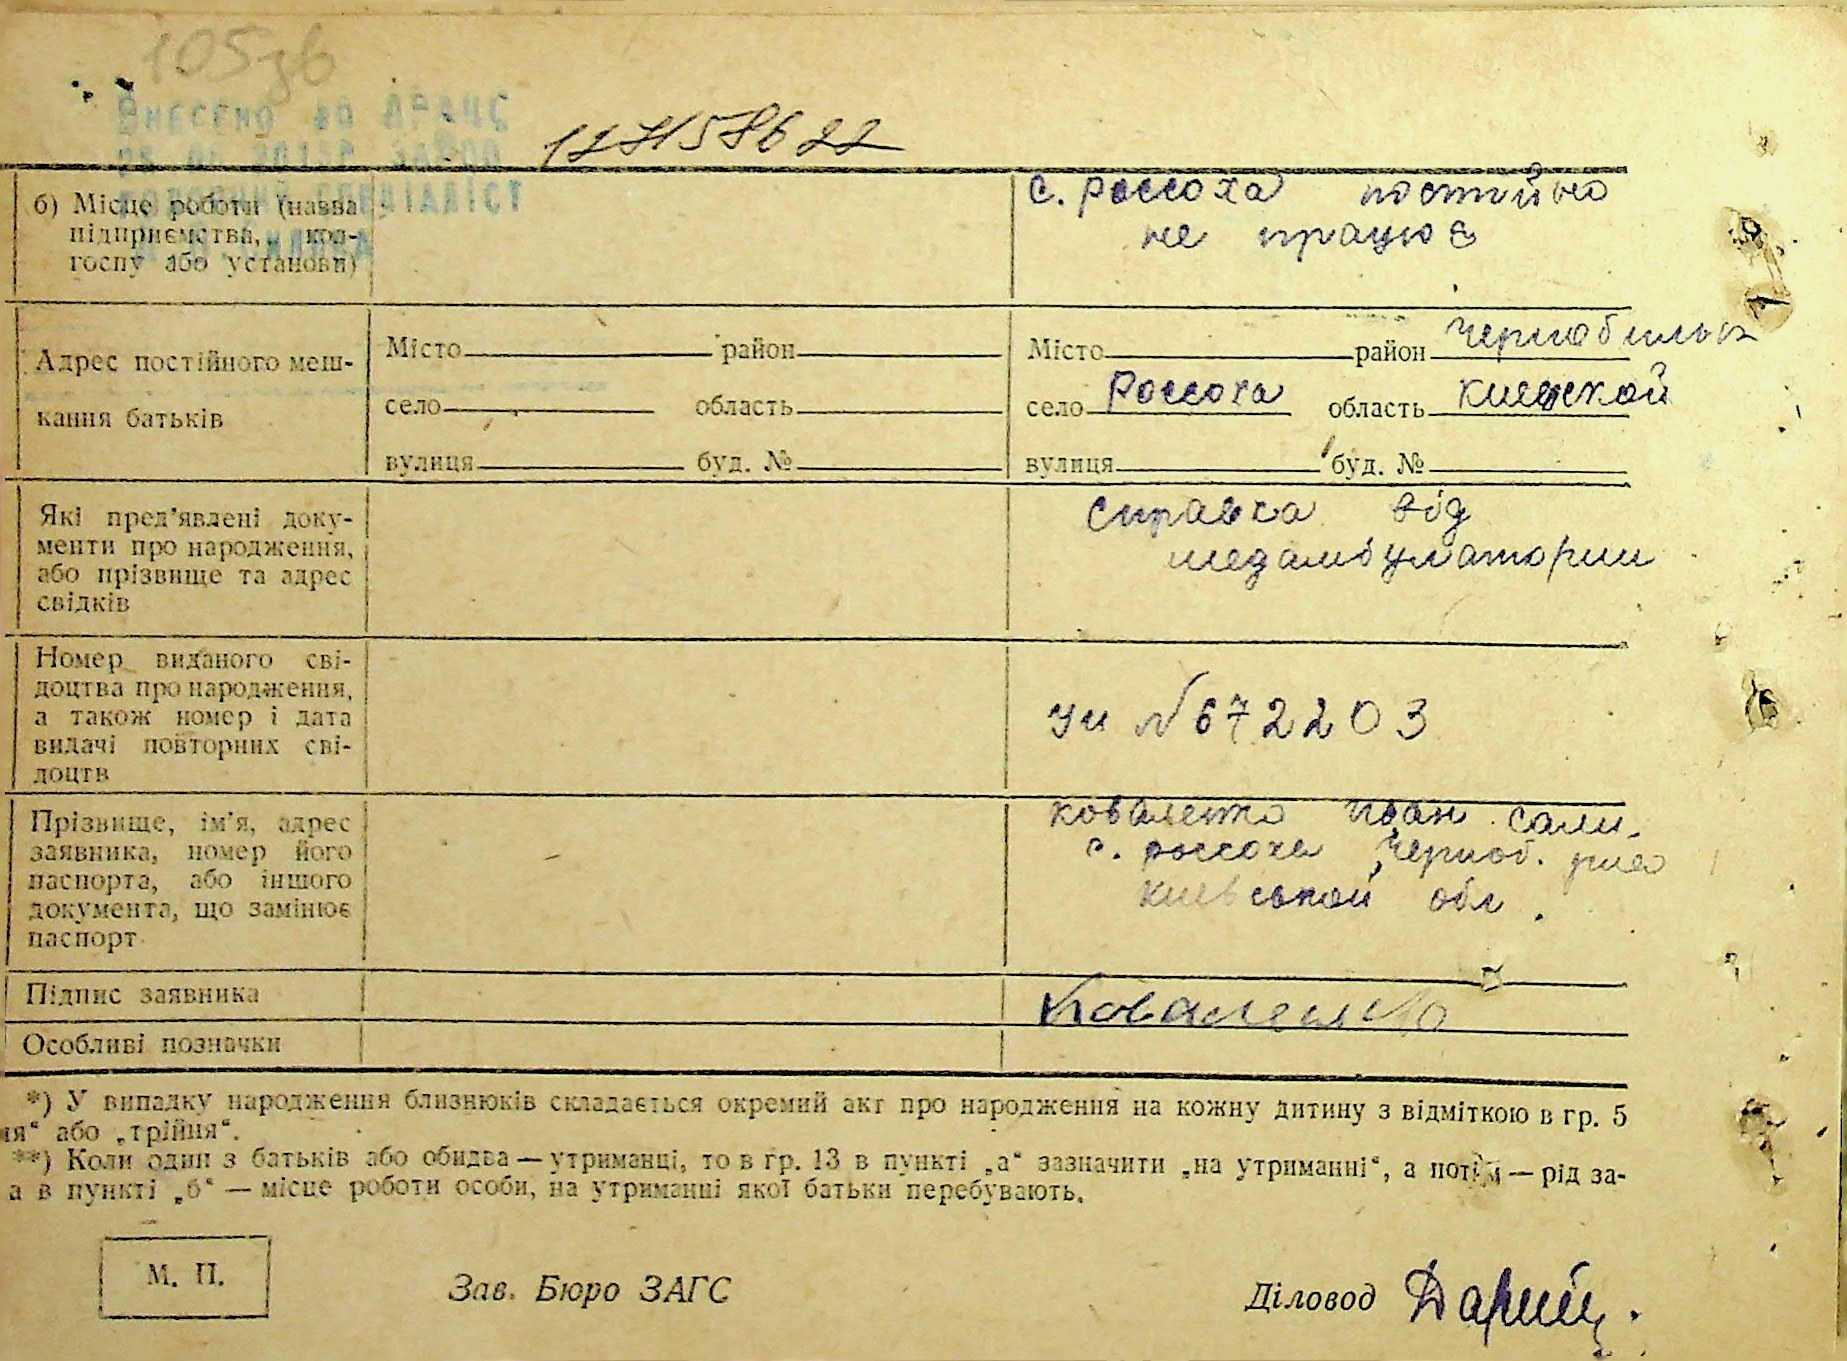 105зв
Внесено до ДРАЦС
спеціаліст
б) Місце роботи (назва
підприємства, кол-
госпу або установи)
с. Россоха постійно
не працює
Адрес постійного меш-
кання батьків
Місто район
село область
вулиця буд. №
Місто район Чернобильск
село Россоха область Киевской
вулиця буд. №
Які пред'явлені доку-
менти про народження,
або прізвище та адрес
свідків
Справка від
медамбулатории
Номер виданого сві-
доцтва про народження,
а також номер і дата
видачі повторних сві-
доцтв
№ 672203
Прізвище, ім'я, адрес
заявника, номер його
паспорта, або іншого
документа, що замінює
паспорт
Коваленко Иван
с. Россоха Черноб.
Киевськой обл.
Підпис заявника
Коваленко
Особливі позначки
*) У випадку народження близнюків складається окремий акт про народження на кожну дитину з відміткою в гр. 5
ія“ або „трійня“.
**) Коли один з батьків або обидва — утриманці, то в гр. 13 в пункті „а“ зазначити „на утриманні“, а потім — рід за-
а в пункті „б“ — місце роботи особи, на утриманні якої батьки перебувають.
М. П.
Зав. Бюро ЗАГС
Діловод